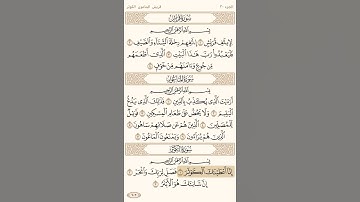 الجزء ٣٠ قريش الماعون الكوثر
سُورَةُ قُرَيْشٍ
بِسْمِ اللَّهِ الرَّحْمَٰنِ الرَّحِيمِ
لِإِيلَٰفِ قُرَيْشٍ ١ إِۦلَٰفِهِمْ رِحْلَةَ الشِّتَاءِ وَالصَّيْفِ ٢
فَلْيَعْبُدُوا رَبَّ هَٰذَا الْبَيْتِ ٣ الَّذِي أَطْعَمَهُم
مِّن جُوعٍ وَءَامَنَهُم مِّنْ خَوْفٍ ٤
سُورَةُ المَاعُونِ
بِسْمِ اللَّهِ الرَّحْمَٰنِ الرَّحِيمِ
أَرَءَيْتَ الَّذِي يُكَذِّبُ بِالدِّينِ ١ فَذَٰلِكَ الَّذِي يَدُعُّ
الْيَتِيمَ ٢ وَلَا يَحُضُّ عَلَىٰ طَعَامِ الْمِسْكِينِ ٣ فَوَيْلٌ
لِّلْمُصَلِّينَ ٤ الَّذِينَ هُمْ عَن صَلَاتِهِمْ سَاهُونَ ٥
الَّذِينَ هُمْ يُرَاءُونَ ٦ وَيَمْنَعُونَ الْمَاعُونَ ٧
سُورَةُ الكَوْثَرِ
بِسْمِ اللَّهِ الرَّحْمَٰنِ الرَّحِيمِ
إِنَّا أَعْطَيْنَٰكَ الْكَوْثَرَ ١ فَصَلِّ لِرَبِّكَ وَانْحَرْ ٢
إِنَّ شَانِئَكَ هُوَ الْأَبْتَرُ ٣
٦٠٢